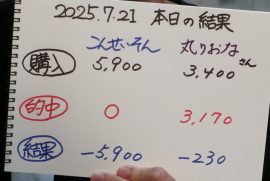 2025.7.21 本日の結果
こんせいそん 丸りおなさん
購入 5,900 3,400
的中 0 3,170
結果 -5,900 -230